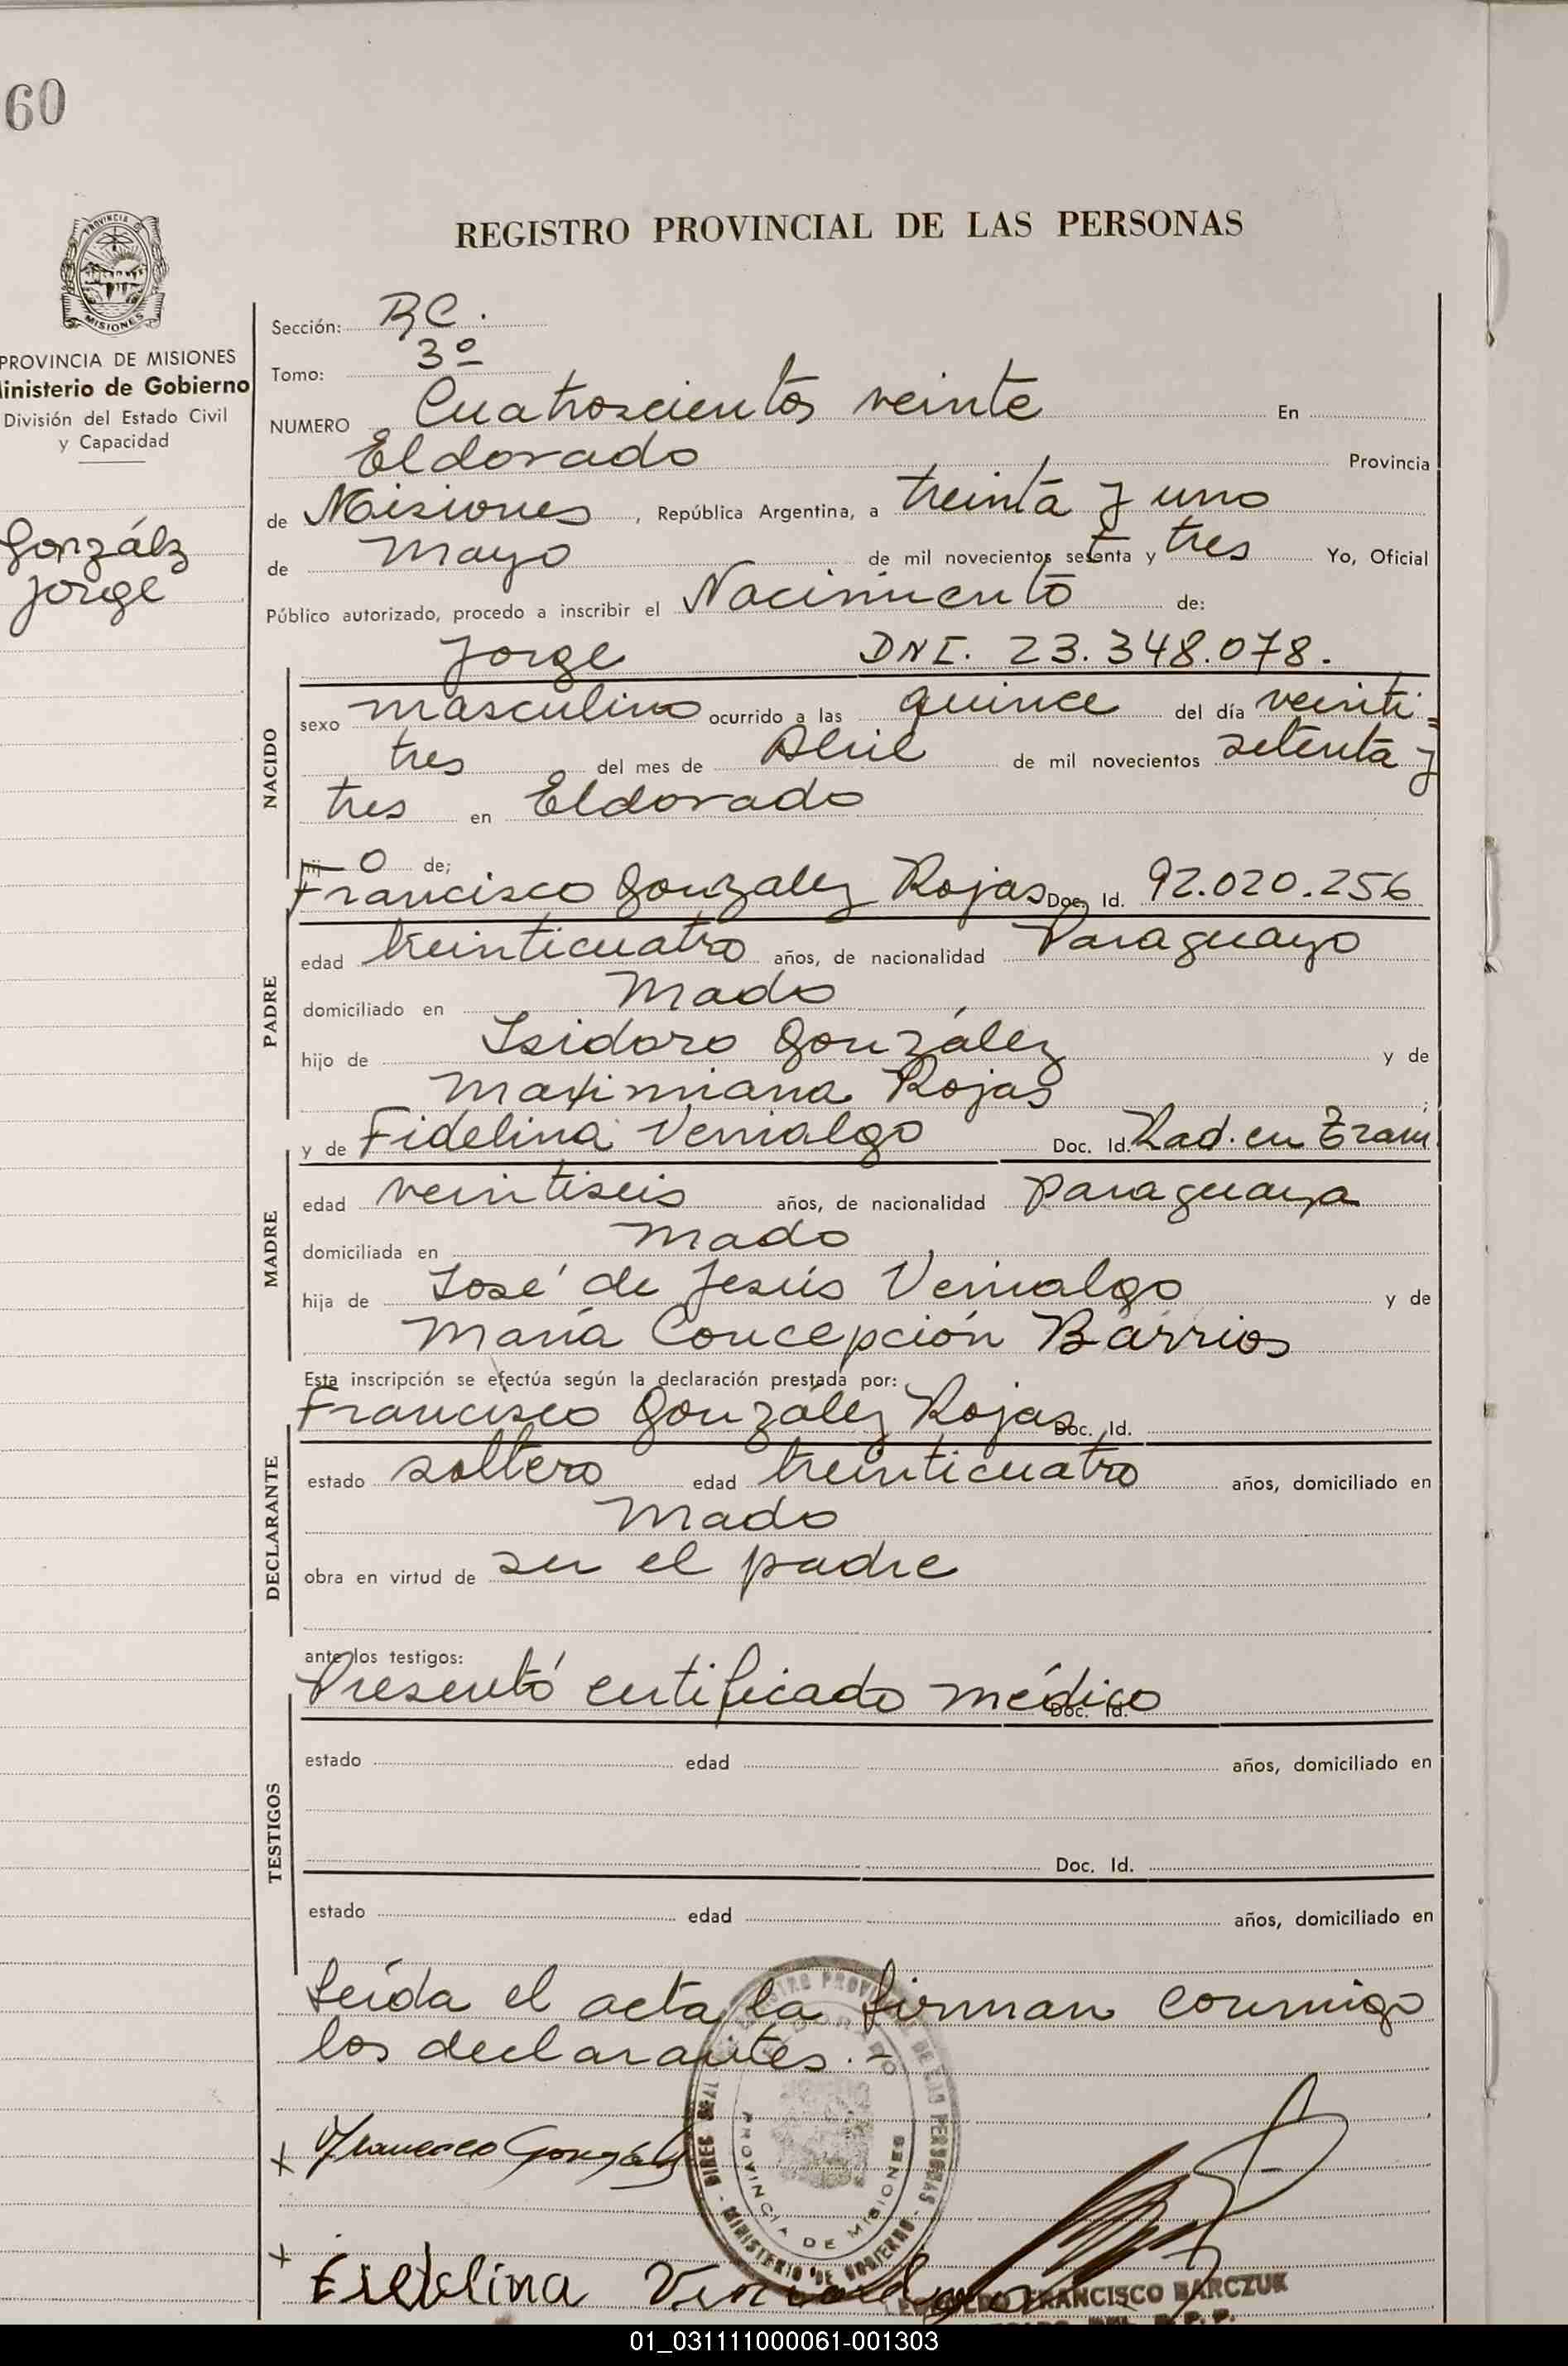 60
REGISTRO PROVINCIAL DE LAS PERSONAS
PROVINCIA
MISIONES
PROVINCIA DE MISIONES
inisterio de Gobierno
División del Estado Civil
y Capacidad
Gonzálz
Jorge
Sección: RC.
Tomo: 3º
NUMERO Cuatroscientos veinte En
Eldorado Provincia
de Misiones, República Argentina, a treinta y uno
de Mayo de mil novecientos setenta y tres Yo, Oficial
Público autorizado, procedo a inscribir el Nacimiento de:
Jorge DNI. 23.348.078.
NACIDO
sexo masculino ocurrido a las quince del día veinti=
tres del mes de Abril de mil novecientos setenta y
tres en Eldorado
hij o de;
Francisco González Rojas Doc. Id. 92.020.256
PADRE
edad treinticuatro años, de nacionalidad Paraguayo
domiciliado en Mado
hijo de Isidoro González y de
Maximiana Rojas ;
y de Fidelina Vernalgo Doc. Id. Rad. en Tram.
MADRE
edad veintiseis años, de nacionalidad paraguaya
domiciliada en Mado
hija de José de Jesús Vernalgo y de
María Concepción Barrios
Esta inscripción se efectúa según la declaración prestada por:
Francisco González Rojas Doc. Id.
DECLARANTE
estado soltero edad treinticuatro años, domiciliado en
Mado
obra en virtud de ser el padre
ante los testigos:
Presentó certificado médico Doc. Id.
TESTIGOS
estado edad años, domiciliado en
Doc. Id.
estado edad años, domiciliado en
Leída el acta la firman conmigo
los declarantes.-
x Francisco González
x Fidelina
PROVINCIA DE MISIONES
MINISTERIO DE GOBIERNO
FRANCISCO BARCZUK
01_031111000061-001303